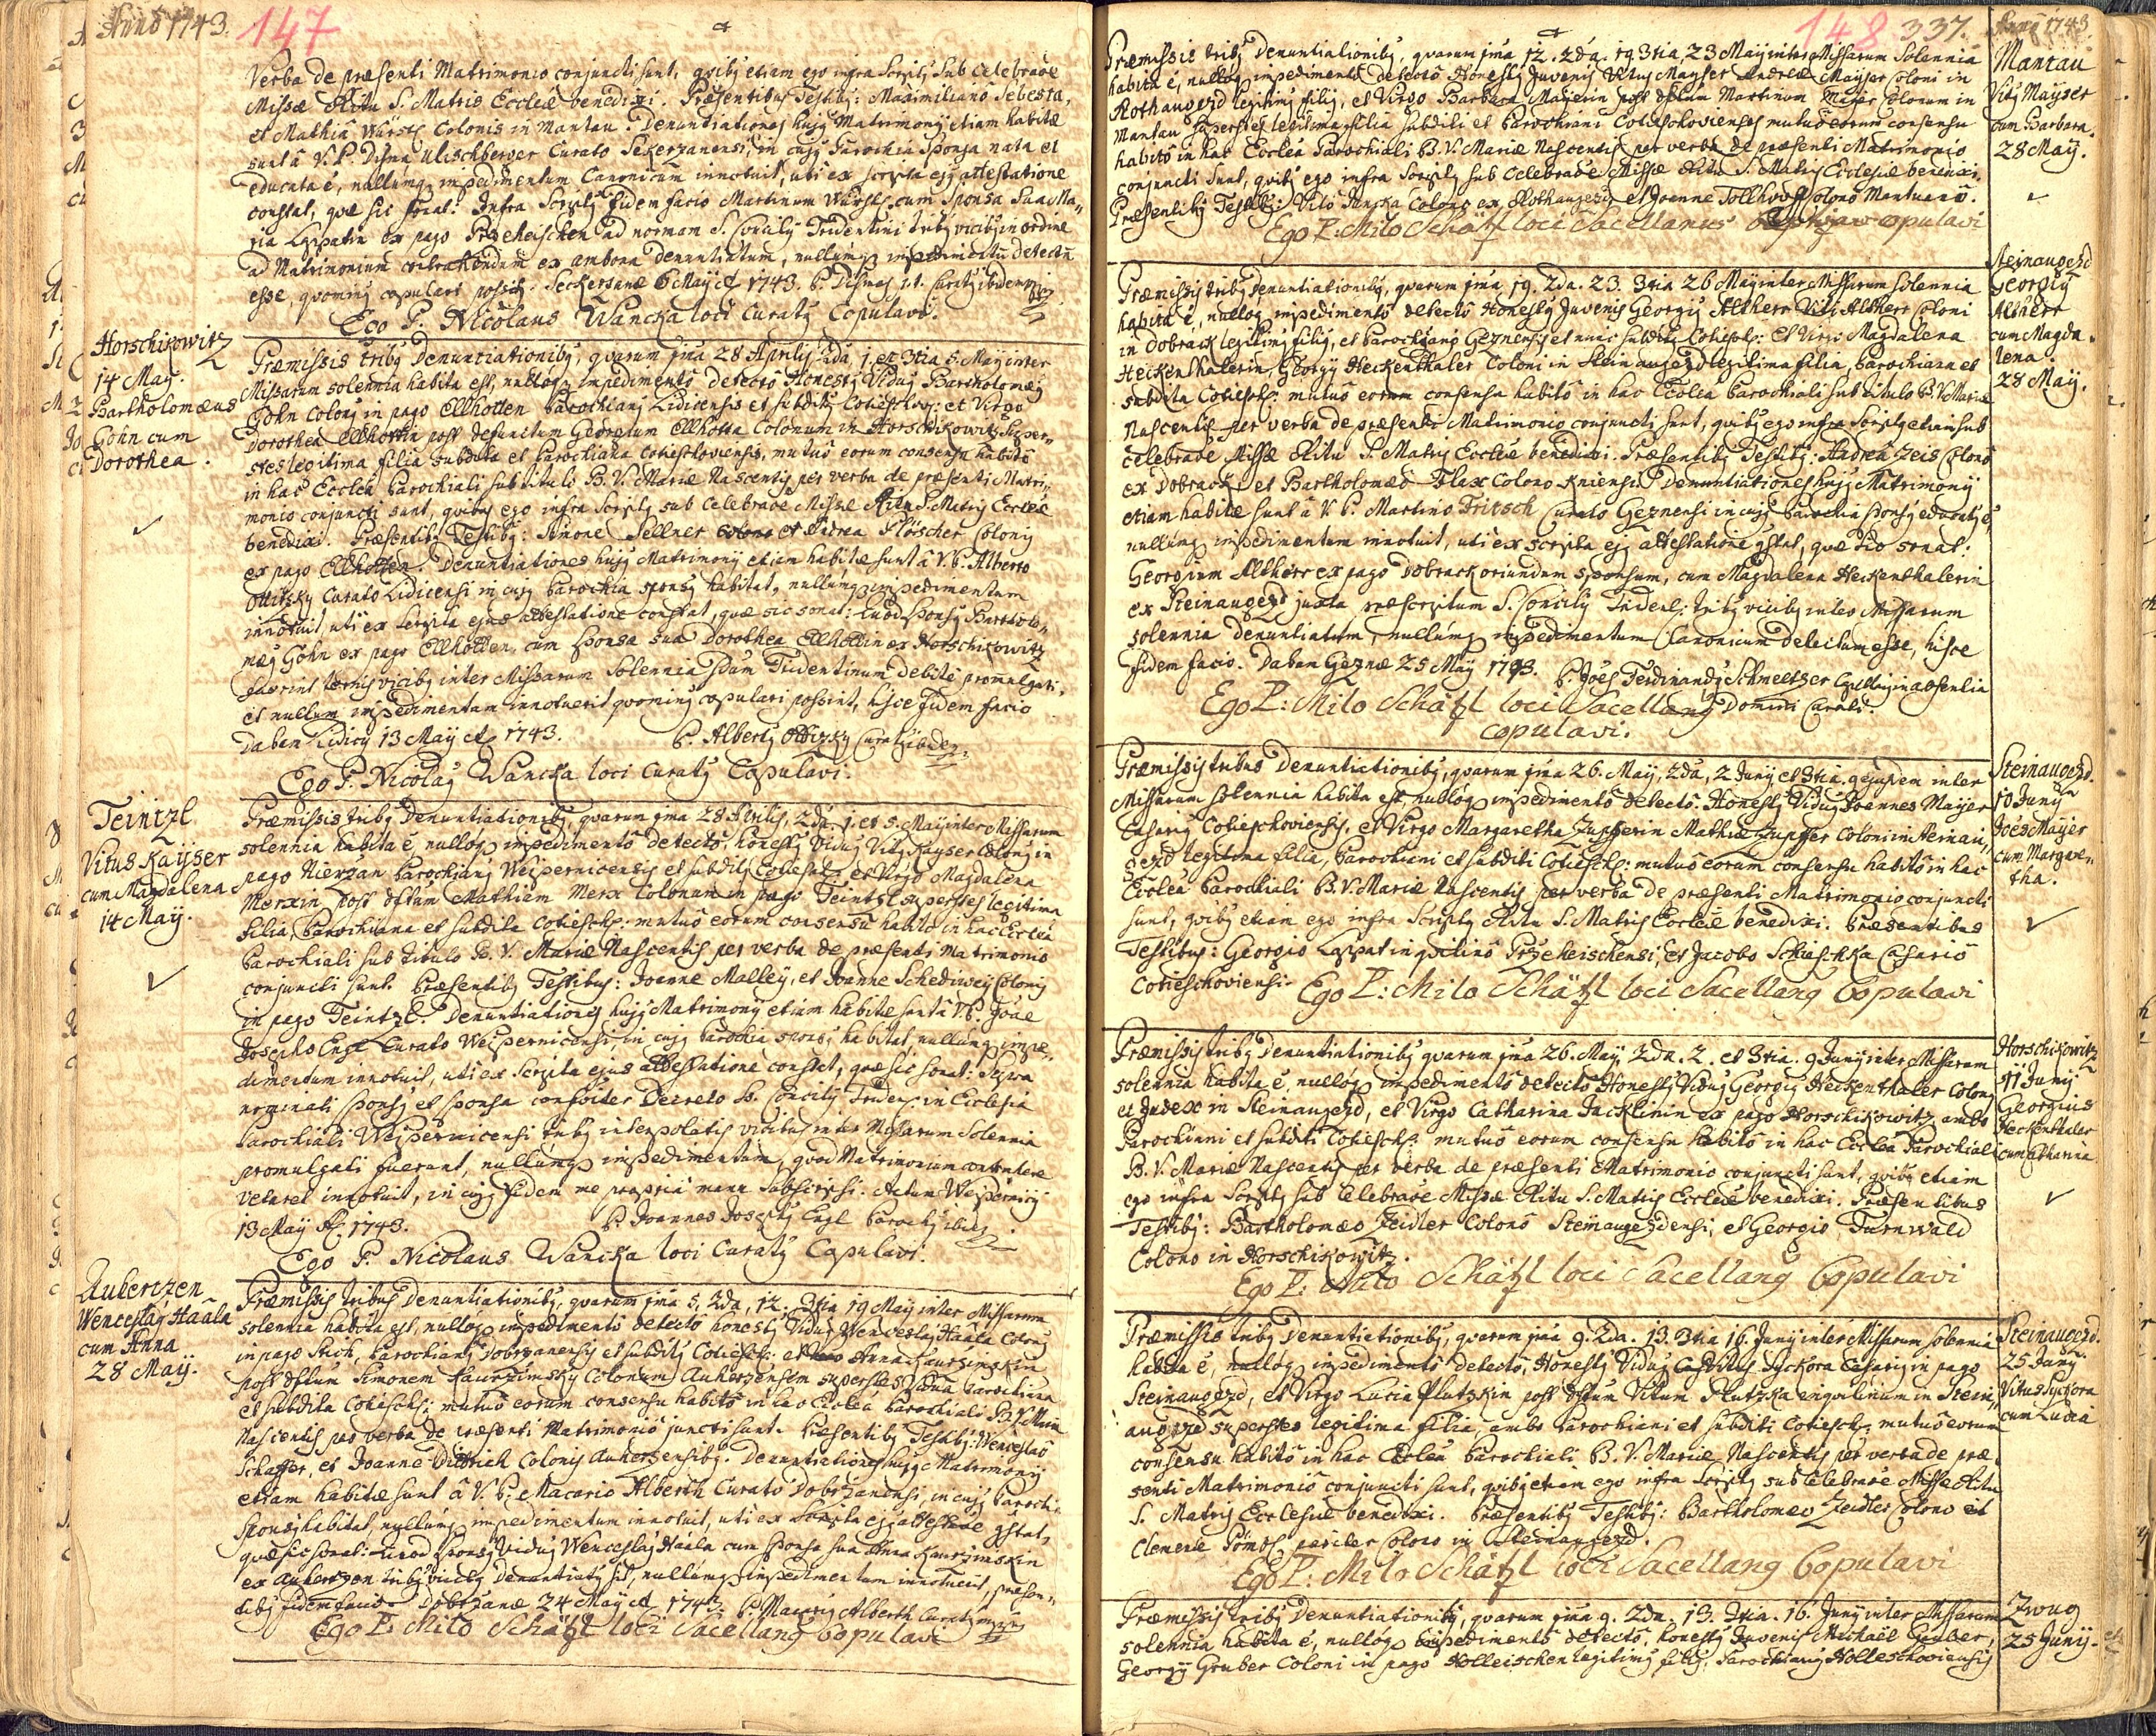 Anno 1743. 147
Verba de præsenti Matrimonio conjuncti sunt, qvibg etiam ego infra Scriptg sub Celebraõe
Missæ Ritu S. Matris Eccleæ benedixi. Præsentibus Testibg: Maximiliano Sebesta,
et Mathia Würstl Colonis in Mantau. Denuntiationes hujg Matrimonÿ etiam habitæ
sunt â V. P. Disma Ulischberger Curato Sekerzanensi, in cujg Parochia Sponsa nata et
educata ê, nullumq impedimentum Canonicum innotuit, uti ex scripta ejg attestatione
constat, quæ sic sonat: Infra Scriptg fidem facio Martinum Würstl cum Sponsa sua Ma„
ria ex pago Przeheischen ad normam S. Concilÿ Tridentini tribg vicibg in ordine
ad Matrimonium contrahendum ex ambona denuntiatum, nullumq impedimentũ detectũ
esse, qvoming copulari possit. Seckersanæ 6 Maÿ Aõ 1743. P. Dismas p.t. Curatg ibidem
Ego P. Nicolaus Wancka loci Curatg Copulavi.
Horschikowitz
14 Maÿ.
Bartholomæus
Gohn cum
Dorothea.
Præmissis tribg Denuntiationibg, qvarum jma 28 Aprilis 2da 1. et 3tia 5. Maÿ inter
Missarum solennia habita est, nulloq impedimentô detectô Honestg Vidug Bartholomæg
Gohn Colong in pago Ellhotten Parochiang Lidicensis et subditg Cotieschov: et Virgo
Dorothea Ellhottin post defunctum Georgium Ellhotta Colonum in Horschikowitz super„
stes legitima filia subdita et Parochiana Cotieschoviensis, mutuô eorum consensu habitô
in hac Ecclea Parochiali sub tituli B. V. Mariæ Nascentis per verba de præsenti Matri„
monio conjuncti sunt, qvibg ego infra Scriptg sub Celebraõe Missæ Ritu S. Matris Eccleæ
benedixi. Præsentibg Testibg: Simone Sellner Colono et Andrea Flöscher Colonis
ex pago Ellhotten. Denuntiationes hujg Matrimonÿ etiam habitæ sunt â V. P. Alberto
Ottitzky Curato Lidicensi in cujg Parochia sponsg habitat, nullumq impedimentum
innotuit, uti ex scripta ejus attestatione constat, quæ sic sonat: Quod Sponsg Bartholo„
mæg Gohn ex pago Ellhotten, cum Sponsa sua Dorothea Ellhottin ex Horschikowitz
fuerint ternis vicibg inter Missarum Solennia Tridentinum debite promulgati,
et nullum impedimentum innotuerit qvoming copulari possint, hisce fidem facio
Daban Lidicÿ 13 Maÿ Aõ 1743. P. Albertg Ottizky Curatg ibidem
Ego P. Nicolag Wancka loci Curatg Copulavi.
Teintzl
Vitus Kaÿser
cum Magdalena
14 Maÿ.
Præmissis tribg Denuntiationibg, qvarum jma 28 Aprilis, 2da 1. et 5. Maÿ inter Missarum
solennia habita ê, nulloq impedimentô detectô, honestg Vidug Vitg Kaÿser Colong in
pago Nierzan Parochiang Weipernicensis et subditg Cotiesch: et Virgo Magdalena
Merxin post dftum Mathiam Merx Colonum in pago Teintzl superstes legitima
filia, Parochiana et subdita Cotiesch: mutuô eorum consensu habito in hac Ecclea
Parochiali sub titulo B. V. Mariæ Nascentis per verba de præsenti Matrimonio
conjuncti sunt. Præsentibg Testibus: Joanne Malleÿ, et Joanne Schediweÿ Colonis
in pago Teintzl. Denuntiationes hujg Matrimonÿ etiam habitæ sunt â V. P. Joãe
Josepho Engl Curato Weipernicensi in cujg Parochia sponsg habitat, nullumq impe„
dimentum innotuit, uti ex Scripta ejus attestatione constat, quæ sic sonat: Supra
nominati sponsg et sponsa conformiter Decreto S. Concilÿ Trident: in Ecclesia
Parochiali Weipernicensi tribg interpolatis vicibus inter Missarum Solennia
promulgati fuerant, nullumq impedimentum, qvod Matrimonium contrahere
vetaret innotuit, in cujg fidem me propria manu subscripsi. Actum Weipernicÿ
13 Maÿ Aõ 1743. P. Joannes Josephg Engl Parochg ibidem.
Ego P. Nicolaus Wancka loci Curatg Copulavi.
Auhertzen
Wenceslag Haala
cum Anna
28 Maÿ.
Præmissis tribus Denuntiationibg, qvarum jma 5, 2da, 12. 3tia 19 Maÿ inter Missarum
solennia habita est, nulloq impedimentô detectô honestg Vidug Wenceslag Haala Colong
in pago Stich, Parochiang Dobrzanensis et subditg Cotiesch: et Anna Kaurzimskin
post dftum Simonem Kaurzimsky Colonum Auherzensem superstes Vidua Parochiana
et subdita Cotiesch: mutuô eorum consensu habitô in hac Ecclea Parochiali B. V. Mariæ
Nascentis per verba de præsenti Matrimonio juncti sunt. Præsentibg Testibg: Wenceslaô
Schaffer, et Joanne Dittrich Colonis Auherzensibg. Denuntiationes hujg Matrimonÿ
etiam habitæ sunt â V. P. Macario Alberth Curato Dobrzanensi, in cujg Parochia
Sponsg habitat, nullumq impedimentum innotuit, uti ex Scripta ejg attestaõe constat,
quæ sic sonat: Qvod Sponsg Vidug Wenceslag Haala cum Sponsa sua Anna Kaurzimskin
ex Auhertzen tribg vicibg denuntiatg sit, nullumq impedimentum innotuerit, præsen„
tibg fidem facio. Dobrzanæ 24 Maÿ Aõ 1743. P. Macarig Alberth Curatg mppr
Ego P: Milo Schätzl loci Sacellang Copulavi
148 337. Anno 1743
Mantau
Vitg Maÿser
cum Barbara.
28 Maÿ.
Præmissis tribg Denuntiationibg, qvarum jma 12. 2da. 19 3tia, 23 Maÿ inter Missarum Solennia
habita ê, nulloq impedimentô detectô Honestg Juvenis Vitus Maÿser Andreæ Maÿser Coloni in
Rothaugezd legitimg filig, et Virgo Barbara Maÿerin post dftum Martinum Maÿer Colonum in
Mantau superstes legitima filia subditi et Parochiani Cotieschovienses mutuô eorum consensu
habitô in hac Ecclea Parochiali B. V. Mariæ Nascentis per verba de præsenti Matrimonio
conjuncti sunt, qvibg ego infra Scriptg sub celebraõe Missæ Ritu S. Matris Ecclesiæ benedixi.
Præsentibg Testibg: Vito Jirzka Colono ex Rothaugezd et Joanne Tollhopf Colono Mantuanô.
Ego P: Milo Schätzl loci Sacellanus copulavi
Steinaugezd
Georgig
Altherr
cum Magda„
lena.
28 Maÿ.
Præmissis tribg Denuntiationibg, qvarum jma 19. 2da. 23. 3tia 26 Maÿ inter Missarum Solennia
habita ê, nulloq impedimentô detectô Honestg Juvenis Georgig Altherr Viti Altherr Coloni
in Dobrack legitimg filig, et Parochiang Geznensis et nunc subditg Cotiesch: et Virgo Magdalena
Heckenthalerin, Georgÿ Heckenthaler Coloni in Steinaugezd legitima filia, Parochiana et
subdita Cotiesch: mutuô eorum consensu habitô in hac Ecclea Parochiali sub titulo B. V. Mariæ
Nascentis per verba de præsenti Matrimonio conjuncti sunt, qvibg ego infra Scriptg etiam sub
celebraõe Missæ Ritu S. Matris Eccleæ benedixi. Præsentibg Testibg: Andrea Zeis Colonô
ex Dobrack et Bartholomæô Flax Colono Kniensi. Denuntiationes hujg Matrimonÿ
etiam habitæ sunt â V. P. Martino Fritsch Curato Geznensi in cujg Parochia sponsg educatg ê,
nullumq impedimentum innotuit, uti ex scripta ejg attestatione constat, quæ sic sonat:
Georgium Altherr ex pago Dobrack oriundum sponsum, cum Magdalena Heckenthalerin
ex Steinaugezd juxta præscriptum S. Concilÿ Trident: tribg vicibg inter Missarum
solennia denuntiatum, nullumq impedimentum Canonicum detectum esse, hisce
fidem facio. Daban Geznæ 25 Maÿ 1743. P. Joẽs Ferdinandg Schmeltzer in absentia
Domini Curati.
Ego P: Milo Schätzl loci Sacellang
copulavi.
Steinaugezd.
10 Junÿ
Joẽs Maÿer
cum Margare„
tha.
Præmissis tribus Denuntiationibg, qvarum jma 26. Maÿ, 2da, 2 Junÿ et 3tia. 9 ejusdem inter
Missarum Solennia habita est, nulloq impedimentô detectô. Honestg Vidug Joannes Maÿer
Casarig Cotieschoviensis, et Virgo Margaretha Zupfferin Mathiæ Zupffer Coloni in Steinau„
gezd legitima filia, Parochiani et subditi Cotiesch: mutuô eorum consensu habitô in hac
Ecclea Parochiali B. V. Mariæ Nascentis per verba de præsenti Matrimonio conjuncti
sunt, qvibg etiam ego infra Scriptg Ritu S. Matris Eccleæ benedixi. Præsentibus
Testibus: Georgio inqvilinô Przeheischensi, et Jacobo Schieschka Casariô
Cotieschoviensi. Ego P: Milo Schätzl loci Sacellang Copulavi
Horschikowitz
11 Junÿ
Georgius
Heckenthaler
cum Catharina
Præmissis tribg Denuntiationibg qvarum jma 26. Maÿ 2da. 2. et 3tia. 9 Junÿ inter Missarum
solennia habita ê, nulloq impedimentô detectô Honestg Vidug Georgig Heckenthaler Colong
et Judex in Steinaugezd, et Virgo Catharina Jacklinin ex pago Horschikowitz ambo
Parochiani et subditi Cotiesch: mutuô eorum consensu habitô in hac Ecclea Parochiali
B. V. Mariæ Nascentis per verba de præsenti Matrimonio conjuncti sunt, qvibg etiam
ego infra Scriptg sub Celebraõe Missæ Ritu S. Matris Eccleæ benedixi. Præsentibus
Testibg: Bartholomæo Zeidler Colonô Steinaugezdensi, et Georgio Turnwald
Colono in Horschikowitz.
Ego P: Milo Schätzl loci Sacellang Copulavi
Steinaugezd.
25 Junÿ
Vitus Sÿckora
cum Lucia
Præmissis tribg Denuntiationibg, qvarum jma 9. 2da. 13. 3tia 16. Junÿ inter Missarum Solennia
habita ê, nulloq impedimentô detectô, Honestg Vidug Vitus Sÿckora Casarig in pago
Steinaugezd, et Virgo Lucia Plutzkin post dftum Vitum Plutzka inqvilinum in Stein„
augezd superstes legitima filia, ambo Parochiani et subditi Cotiesch: mutuô eorum
consensu habitô in hac Ecclea Parochiali B. V. Mariæ Nascentis per verba de præ„
senti Matrimoniô conjuncti sunt, qvibg etiam ego infra Scriptg sub Celebraõe Missæ Ritu
S. Matris Ecclesiæ benedixi. Præsentibg Testibg: Bartholomæo Zeidler Colono et
Clemente Pömosl pariter Colono in Steinaugezd.
Ego P: Milo Schätzl loci Sacellang Copulavi
Zwug
25 Junÿ.
Præmissis tribg Denuntiationibg, qvarum jma 9. 2da. 13. 3tia. 16. Junÿ inter Missarum
solennia habita ê, nulloq impedimentô detectô, honestg Juvenis Michaël Gruber,
Georgÿ Gruber Coloni in pago Holleischen legitimg filig, Parochiang Holleschoviensis